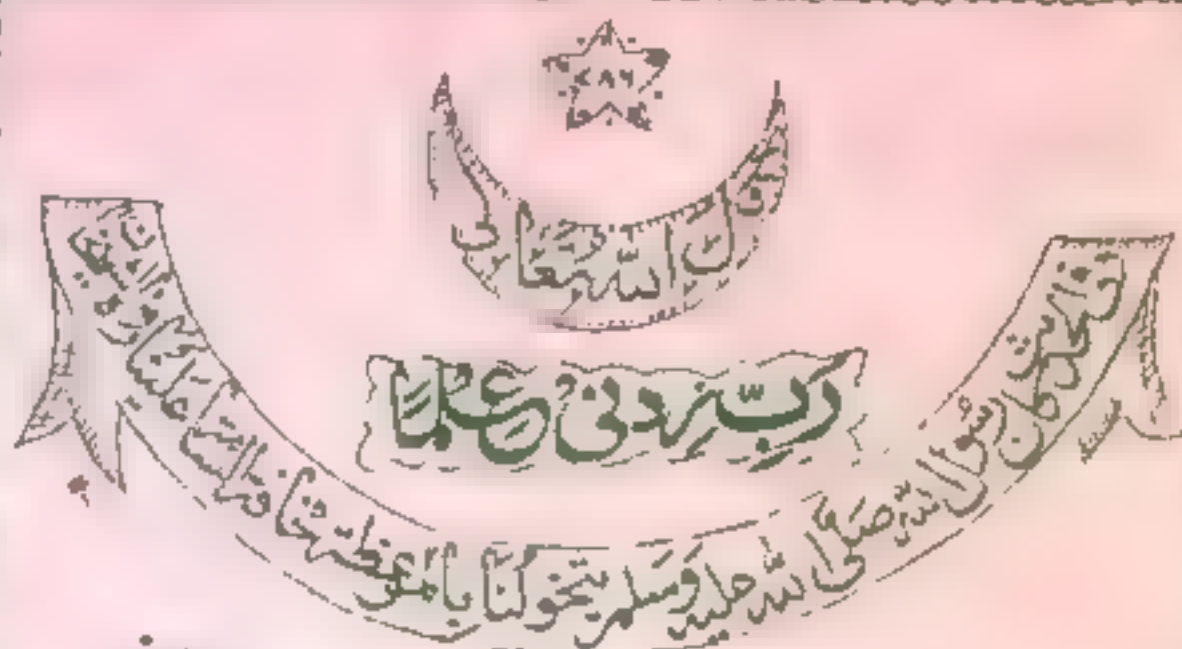 ۷۸۶
قال الله تعالى
رَبِّ زِدْنِیْ عِلْمًا
كان رسول الله صلى الله عليه وسلم يتخولنا بالموعظة علينا